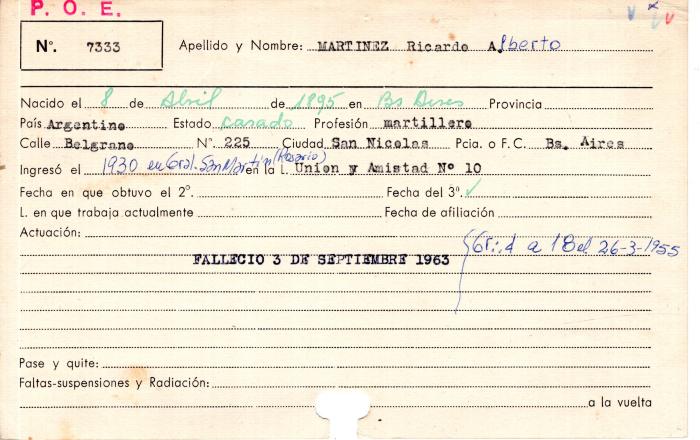 P. O. E.
N°. 7333 Apellido y Nombre: MARTINEZ Ricardo Alberto
Nacido el 8 de Abril de 1895 en Bs Aires Provincia
País Argentino Estado casado Profesión martillero
Calle Belgrano N° 225 Ciudad San Nicolas Pcia. o F.C. Bs. Aires
Ingresó el 1930 en Gral. San Martín (Rosario) en la L. Union y Amistad Nº 10
Fecha en que obtuvo el 2°. Fecha del 3°. ✓
L. en que trabaja actualmente Fecha de afiliación:
Actuación:
a 18 el 26-3-1955
FALLECIO 3 DE SEPTIEMBRE 1963
Pase y quite:
Faltas-suspensiones y Radiación:
a la vuelta